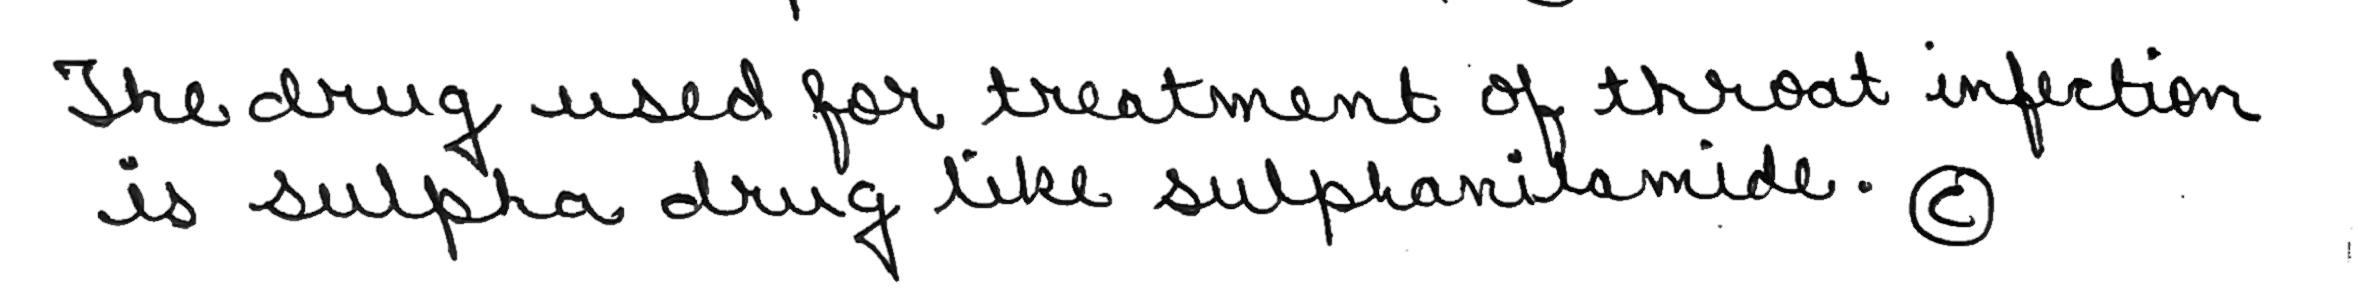 The drug used for treatment of throat infection
is sulpha drug like sulphanilamide. ©